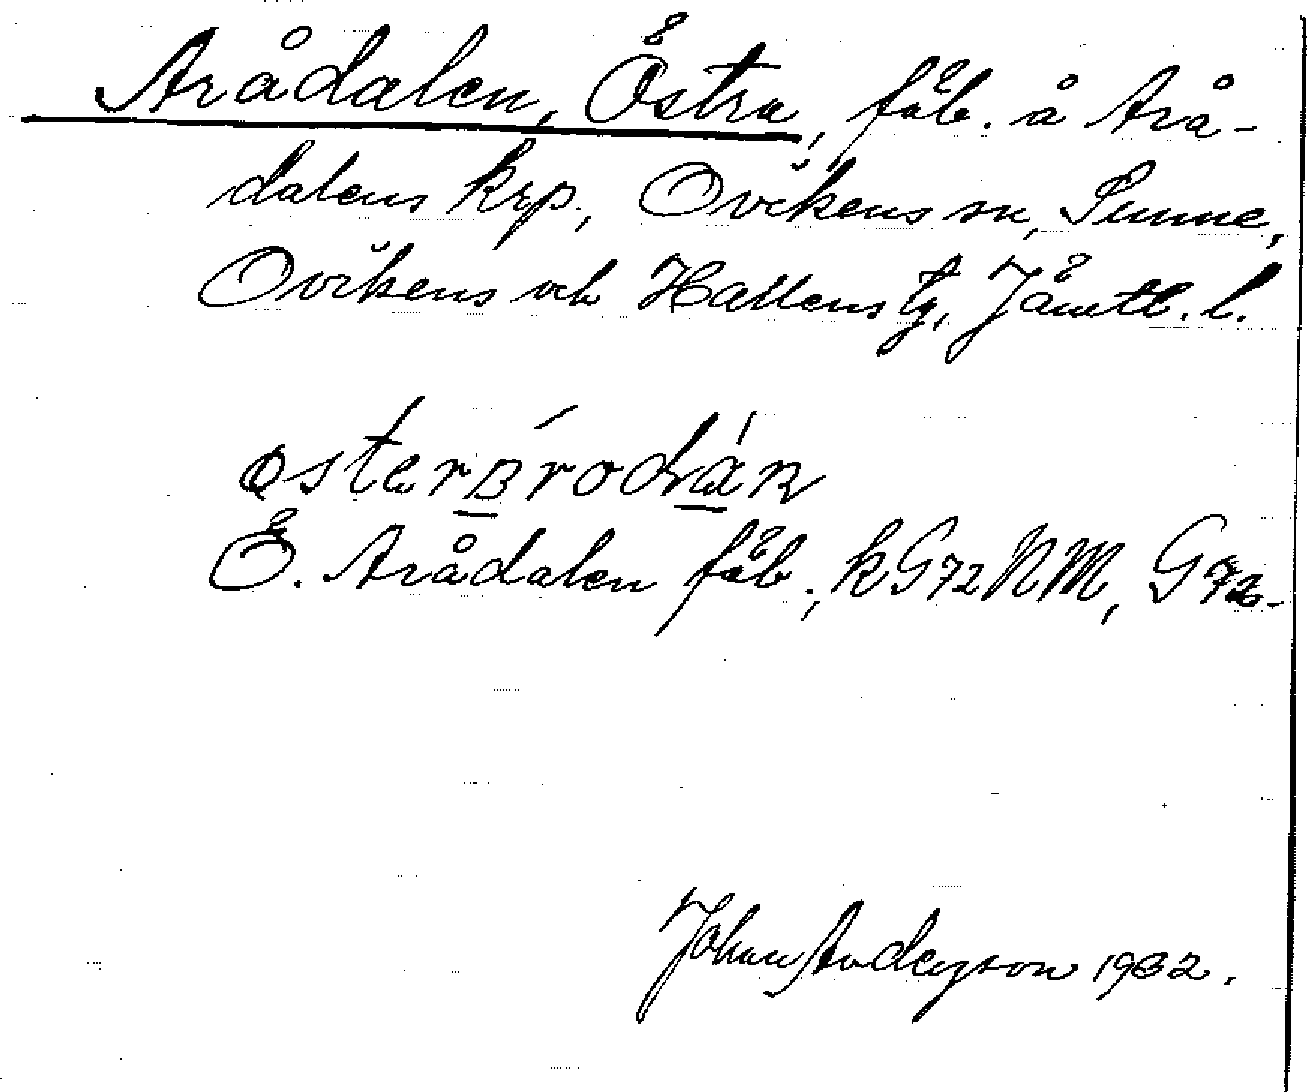 Arådalen, Östra, fäb. å Arå-
dalens krp, Ovikens sn, Sunne,
Ovikens och Hallens tg, Jämtl. l.
Ö. Arådalen fäb., kG72NM, G72.
Johan Anderson 1932.